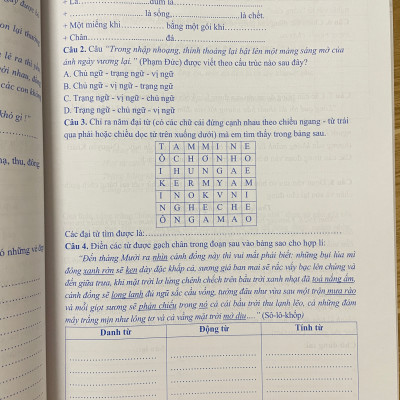 + ........................ là sống,........................, là chết.
+ Một miếng khi................ bằng một gói khi............
+ Chân........................ đá............................
Câu 2. Câu "Trong nhập nhoạng, thỉnh thoảng lại bật lên một mảng sáng mờ của
ánh ngày vương lại." (Phạm Đức) được viết theo cấu trúc nào sau đây?
A. Chủ ngữ - trạng ngữ - vị ngữ
B. Chủ ngữ - vị ngữ - trạng ngữ
C. Trạng ngữ - vị ngữ - chủ ngữ
D. Trạng ngữ - chủ ngữ - vị ngữ
Câu 3. Chỉ ra năm đại từ (có các chữ cái đứng cạnh nhau theo chiều ngang - từ trái
qua phải hoặc chiều dọc từ trên xuống dưới) mà em tìm thấy trong bảng sau.
T A M M I N E
Ô C H Ơ N H O
I H U N G A E
K E R M Y A M
I N O K V N I
N G H E C H E
Ô N G A M A O
Các đại từ tìm được là:
Câu 4. Điền các từ được gạch chân trong đoạn sau vào bảng sao cho hợp lí:
"Đến tháng Mười ra nhìn cánh đồng này thì vui mắt phải biết: những bụi lúa mì
đông xanh rờn sẽ ken dày đặc khắp cả, sương giá ban mai sẽ rắc vảy bạc lên chúng và
đến giữa trưa, khi mặt trời lơ lửng chênh chếch trên bầu trời xanh nhạt đã toả nắng ấm,
cánh đồng sẽ long lanh đủ ngũ sắc cầu vồng, tưởng đâu như vừa sau một trận mưa rào
và mỗi giọt sương sẽ phản chiếu trong nó cả cái bầu trời thu lạnh lẽo, cả những đám
mây trắng mịn như lông tơ và cả vầng mặt trời mờ dịu…." (Sô-lô-khốp)
Danh từ Động từ Tính từ